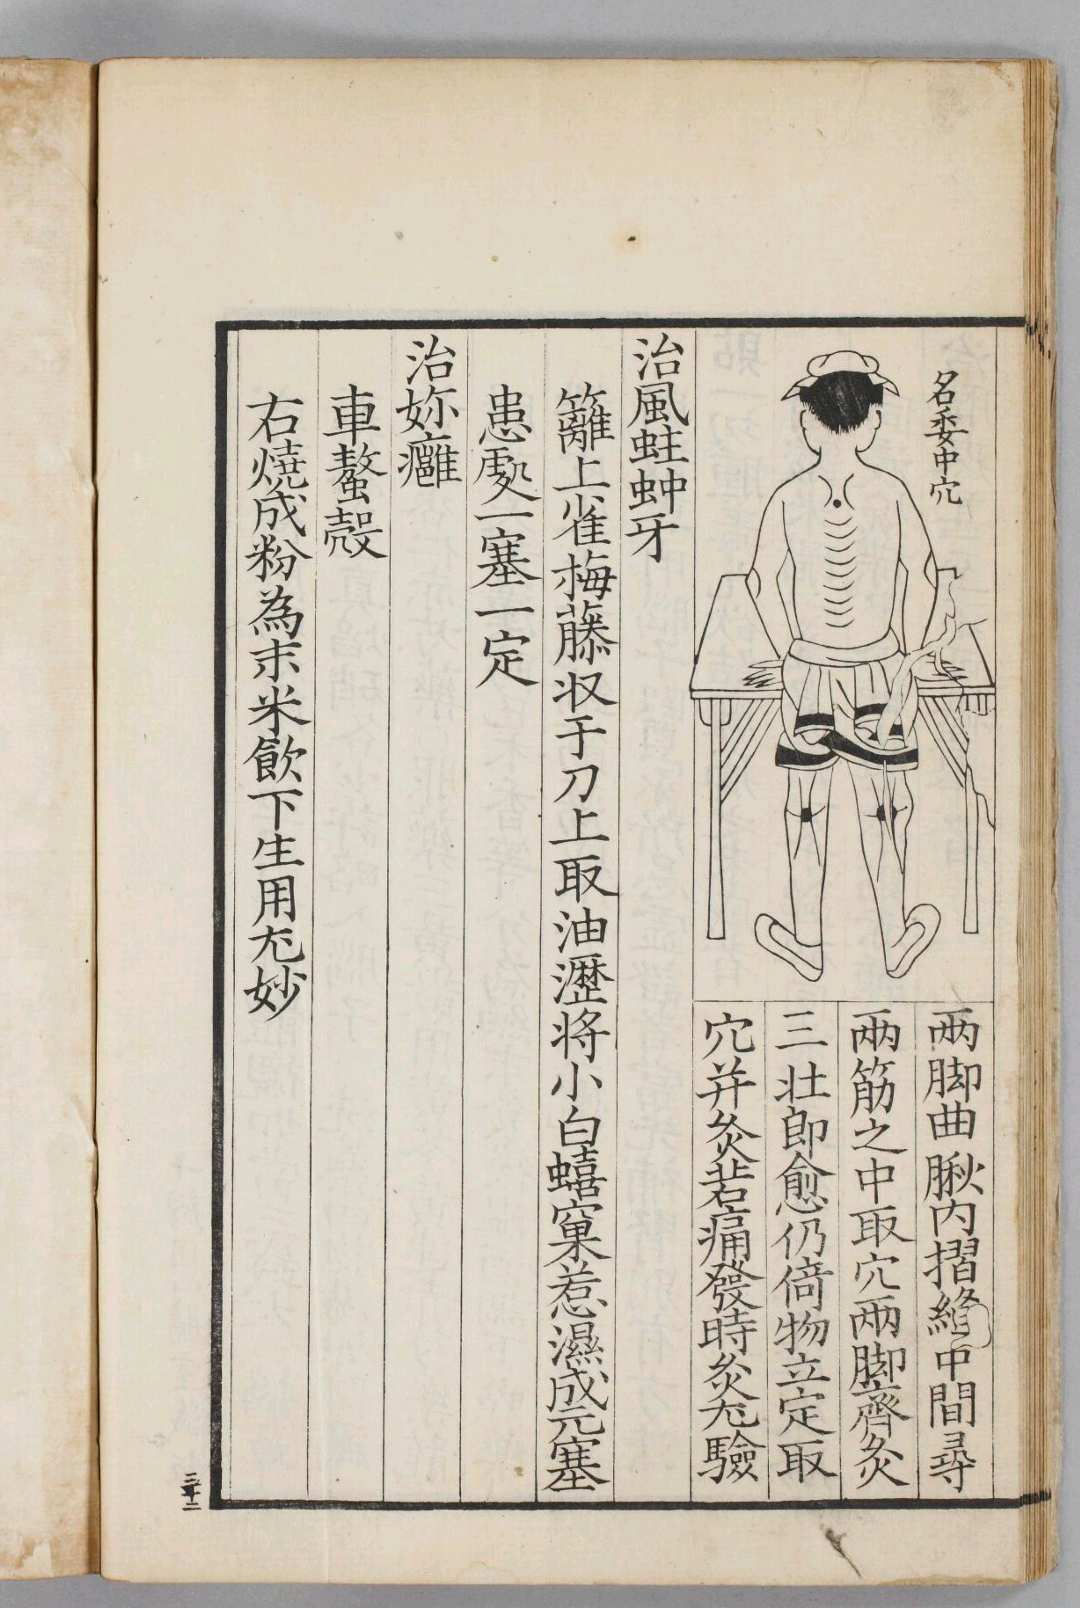 名委中穴
两脚曲脉内摺縫中間尋
两筋之中取穴两脚齊灸
三壮即愈仍倚物立定取
穴并灸若痛發時灸尤驗
治風蛀蚛牙
籬上雀梅藤収于刀上取油瀝将小白蟢窠惹濕成元塞
患處一塞一定
治妳癰
車螯殻
右燒成粉為末米飲下生用尤妙